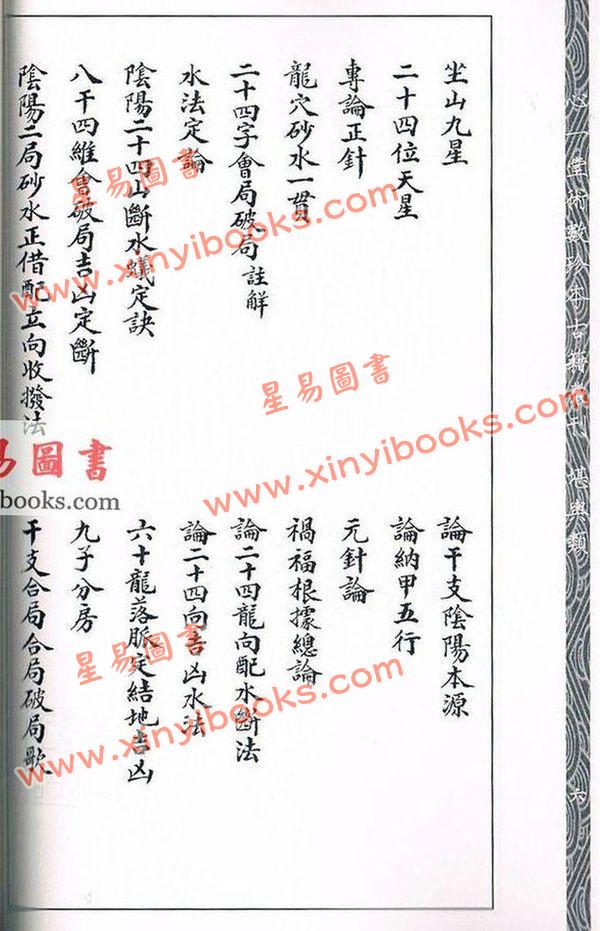 坐山九星
論干支陰陽本源
二十四位天星
論納甲五行
專論正針
元針論
龍穴砂水一貫
禍福根據總論
二十四字會局破局註解
論二十四龍向配水斷法
水法定論
論二十四向吉凶水法
陰陽二十四山斷水蟻定訣
六十龍落脈定結地吉凶
八干四維會破局吉凶定斷
九子分房
陰陽二局砂水正借配立向收撥法
干支合局合局破局歌
心一堂術數珍本古籍叢刊 堪輿類
六
星易圖書
www.xinyibooks.com
星易圖書
www.xinyibooks.com
星易圖書
www.xinyibooks.com
易圖書
ibooks.com